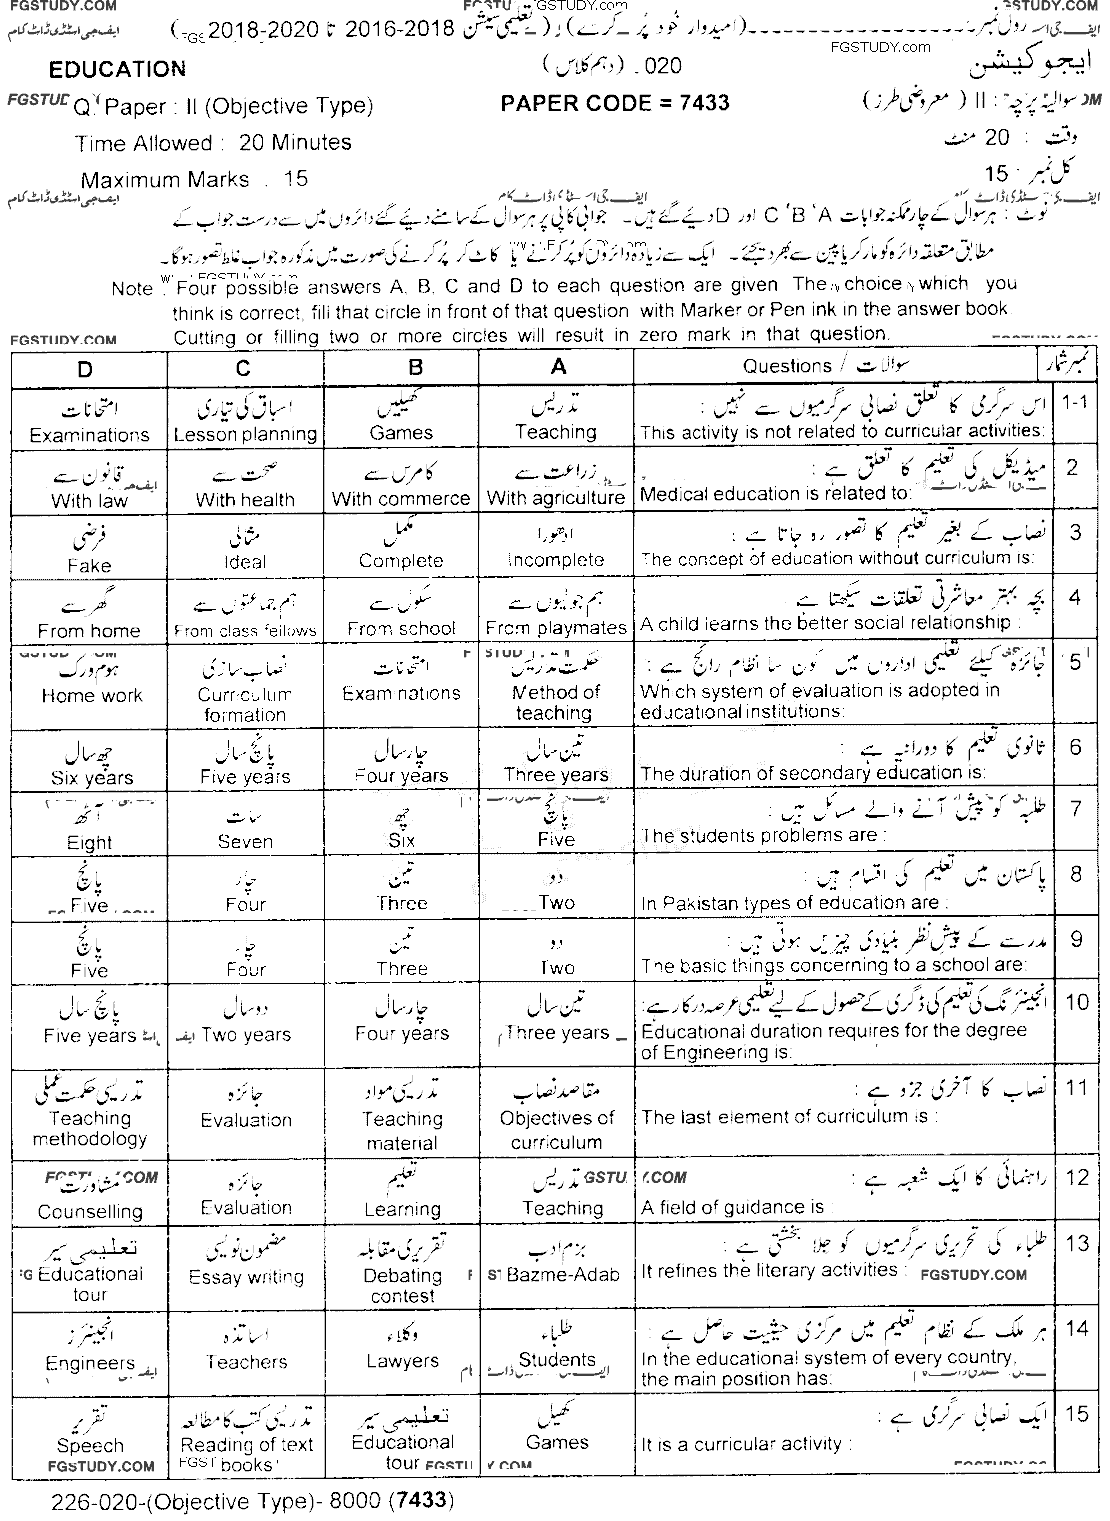 FGSTUDY.COM
FGSTUDY.com
FGSTUDY.COM
ایف جی اسٹڈی ڈاٹ کام
رول نمبر (امیدوار خود پُر کرے) (تعلیمی سیشن 2016-2018 تا 2018-2020)
FGSTUDY.com
EDUCATION
020. (دہم کلاس)
ایجوکیشن
Q. Paper : II (Objective Type)
PAPER CODE = 7433
سوالیہ پرچہ : II (معروضی طرز)
Time Allowed : 20 Minutes
وقت : 20 منٹ
Maximum Marks . 15
کل نمبر : 15
ایف جی اسٹڈی ڈاٹ کام
نوٹ : ہر سوال کے چار ممکنہ جوابات A ' B ' C اور D دیئے گئے ہیں۔ جوابی کاپی پر ہر سوال کے سامنے دیئے گئے دائروں میں سے درست جواب کے
مطابق متعلقہ دائرہ کو مارکر یا پین سے بھر دیجئے۔ ایک سے زیادہ دائروں کو پُر کرنے یا کاٹ کر پُر کرنے کی صورت میں مذکورہ جواب غلط تصور ہوگا۔
Note : Four possible answers A, B, C and D to each question are given The choice which you
think is correct, fill that circle in front of that question with Marker or Pen ink in the answer book.
Cutting or filling two or more circles will result in zero mark in that question.
FGSTUDY.COM
D C B A Questions / سوالات نمبر شمار
1-1 اس سرگرمی کا تعلق نصابی سرگرمیوں سے نہیں :
This activity is not related to curricular activities:
تدریس کھیلیں اسباق کی تیاری امتحانات
Examinations Lesson planning Games Teaching
2 میڈیکل کی تعلیم کا تعلق ہے :
Medical education is related to:
زراعت سے کامرس سے صحت سے قانون سے
With law With health With commerce With agriculture
3 نصاب کے بغیر تعلیم کا تصور رہ جاتا ہے :
The concept of education without curriculum is:
ادھورا مکمل مثالی فرضی
Fake Ideal Complete Incomplete
4 بچہ بہتر معاشرتی تعلقات سیکھتا ہے :
A child learns the better social relationship :
ہم جولیوں سے سکول سے ہم جماعتوں سے گھر سے
From home From class fellows From school From playmates
5 جائزہ کیلئے تعلیمی اداروں میں کون سا نظام رائج ہے :
Which system of evaluation is adopted in
educational institutions:
حکمت تدریس امتحانات نصاب سازی ہوم ورک
Home work Curriculum formation Examinations Method of teaching
6 ثانوی تعلیم کا دورانیہ ہے :
The duration of secondary education is:
تین سال چار سال پانچ سال چھ سال
Six years Five years Four years Three years
7 طلبہ کو پیش آنے والے مسائل ہیں :
The students problems are :
پانچ چھ سات آٹھ
Eight Seven Six Five
8 پاکستان میں تعلیم کی اقسام ہیں :
In Pakistan types of education are :
دو تین چار پانچ
Five Four Three Two
9 مدرسے کے پیش نظر بنیادی چیزیں ہوتی ہیں :
The basic things concerning to a school are:
دو تین چار پانچ
Five Four Three Two
10 انجینئرنگ کی تعلیم کی ڈگری کے حصول کے لیے تعلیمی عرصہ درکار ہے:
Educational duration requires for the degree
of Engineering is:
تین سال چار سال دو سال پانچ سال
Five years Two years Four years Three years
11 نصاب کا آخری جزو ہے :
The last element of curriculum is :
مقاصد نصاب تدریسی مواد جائزہ تدریسی حکمت عملی
Teaching methodology Evaluation Teaching material Objectives of curriculum
12 راہنمائی کا ایک شعبہ ہے :
A field of guidance is :
تدریس تعلیم جائزہ مشاورت
Counselling Evaluation Learning Teaching
13 طلباء کی تحریری سرگرمیوں کو جلا بخشتی ہے :
It refines the literary activities : FGSTUDY.COM
بزم ادب تقریری مقابلہ مضمون نویسی تعلیمی سیر
Educational tour Essay writing Debating contest Bazme-Adab
14 ہر ملک کے نظام تعلیم میں مرکزی حیثیت حاصل ہے :
In the educational system of every country,
the main position has:
طلباء وکلاء اساتذہ انجینئرز
Engineers Teachers Lawyers Students
15 ایک نصابی سرگرمی ہے :
It is a curricular activity :
کھیل تعلیمی سیر تدریسی کتب کا مطالعہ تقریر
Speech Reading of text books Educational tour Games
FGSTUDY.COM
226-020-(Objective Type)- 8000 (7433)